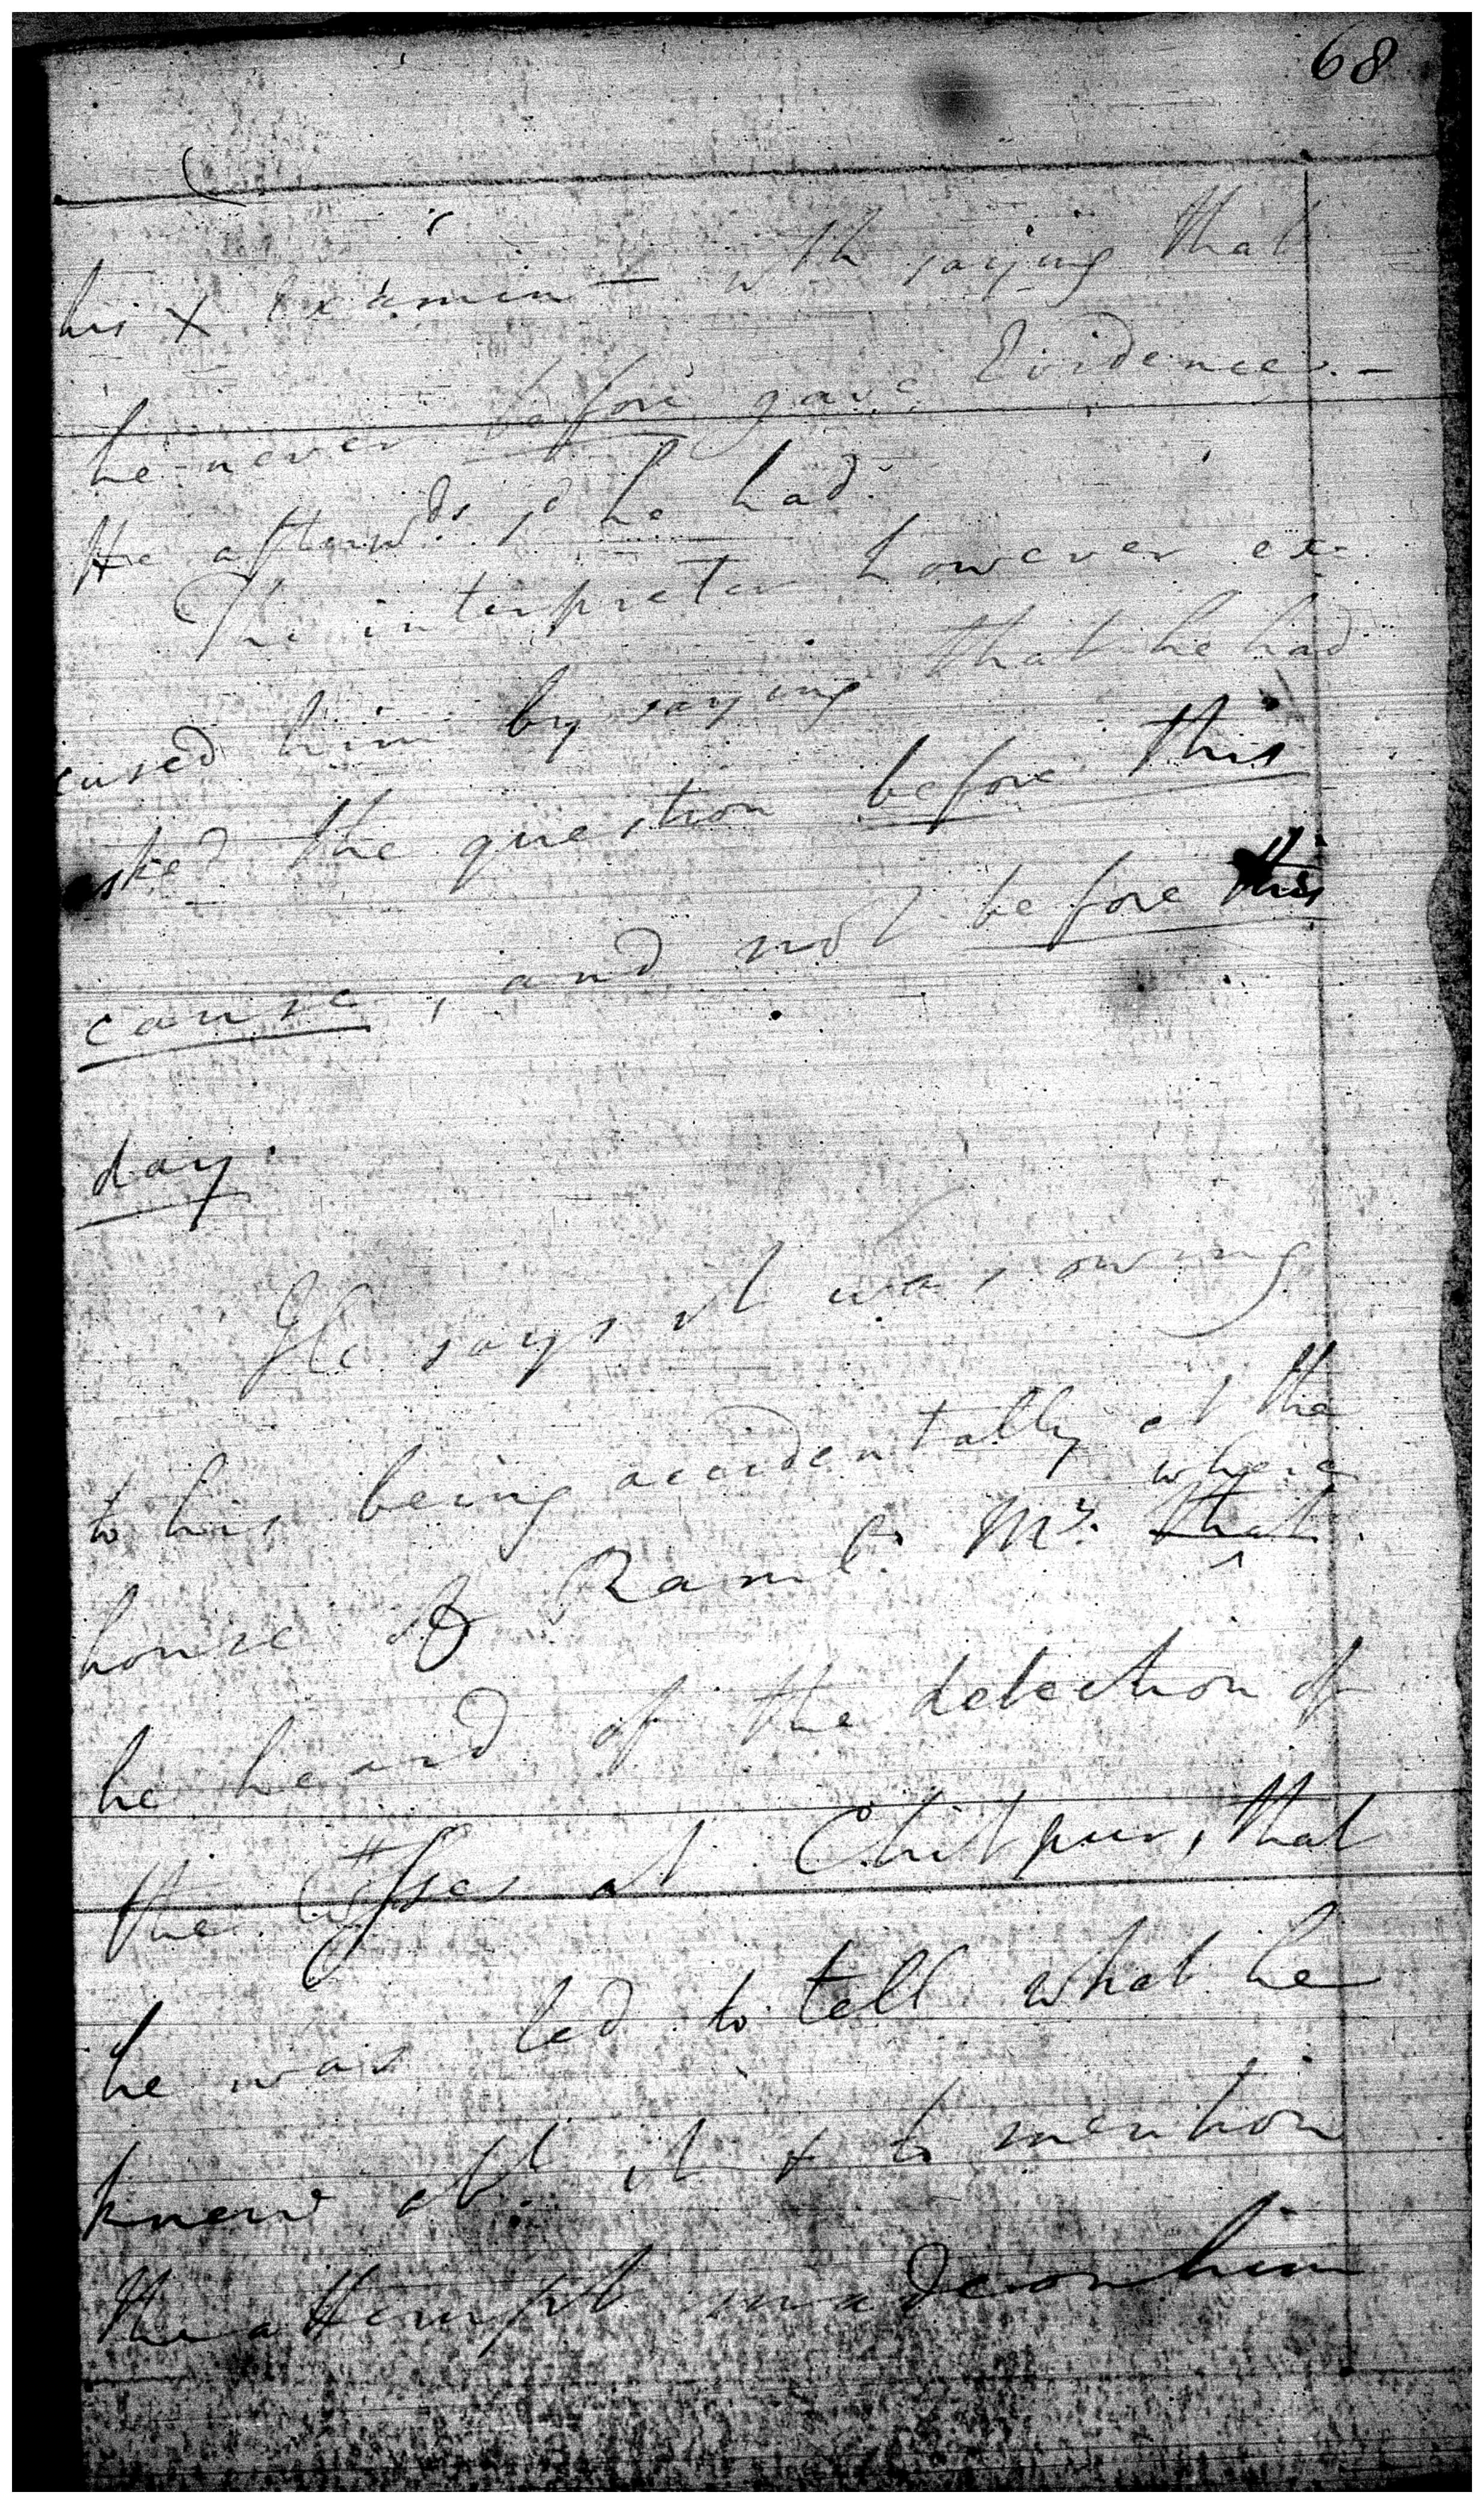 68
his X examinn with saying that
he never before gave Evidence. –
He afterwds sd he had.
The interpreter however ex-
cused him by saying that he had
asked the question before this
cause, and not before this
day.
He says it was owing
to his being accidentally at the
where
house of Raml. Mr. that
he heard of the detection of
the at Chitpur, that
he was led to tell what he
knew abt it & to mention
the attempt made on him